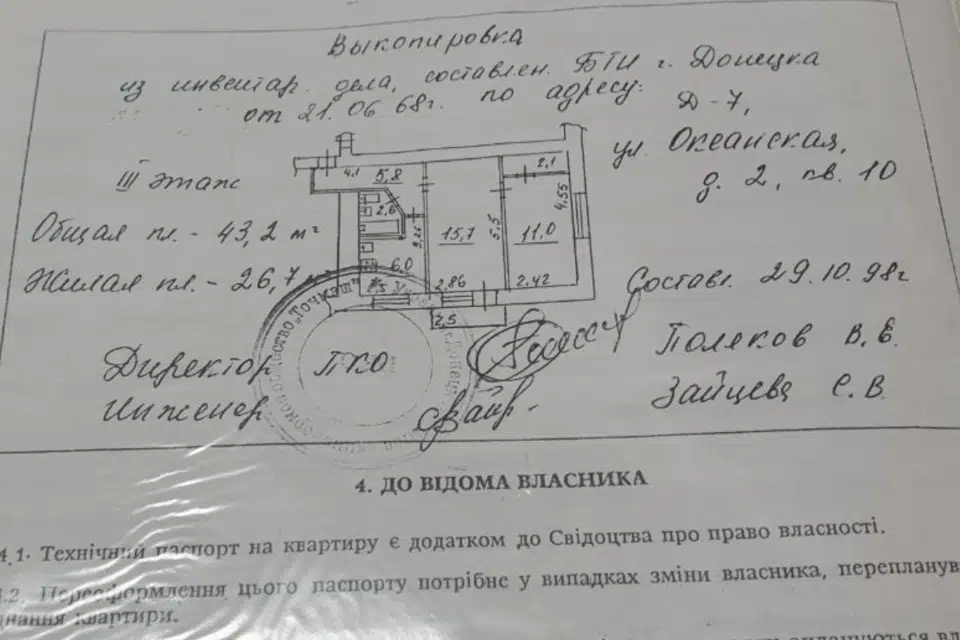 Выкопировка
из инвентар. дела, составлен. БТИ г. Донецка
от 21.06.68г. по адресу:
Д-7,
ул. Океанская,
д. 2, кв. 10
III этаж
Общая пл. - 43,2 м²
Жилая пл. - 26,7
4,1
5,8
2,1
2,6
4,55
15,7
5,5
11,0
6,0
2,5
2,86
2,42
2,5
Составл. 29.10.98г
"Точмаш"
Директор ПКО
Поляков В.Е.
Инженер
Зайцева С.В.
4. ДО ВІДОМА ВЛАСНИКА
4.1. Технічний паспорт на квартиру є додатком до Свідоцтва про право власності.
4.2. Переоформлення цього паспорту потрібне у випадках зміни власника, перепланув
днання квартири.